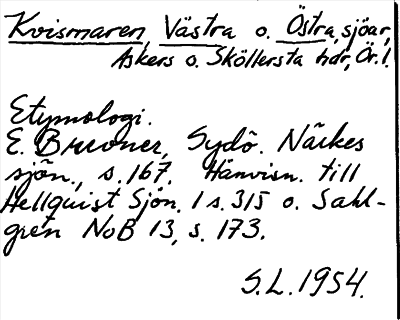 Kvismaren, Västra o. Östra, sjöar,
Askers o. Sköllersta hdr, Ör. l.
Etymologi.
E. Bruuner, Sydö. Närkes
sjön., s. 167. Hänvisn. till
Hellquist Sjön. 1 s. 315 o. Sahl-
gren NoB 13, s. 173.
S.L. 1954.